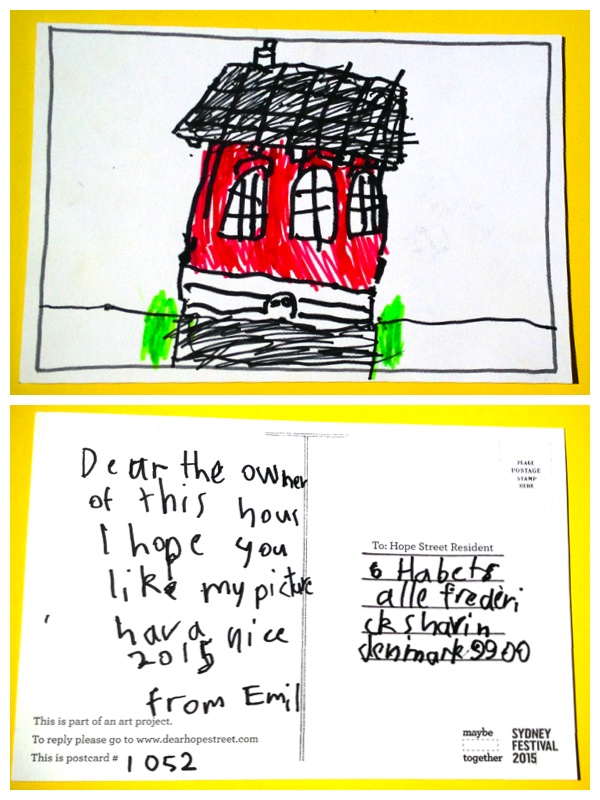 Dear the owner
of this hous
I hope you
like my picture
hava nice
2015
from Emil
This is part of an art project.
To reply please go to www.dearhopestreet.com
This is postcard # 1052
PLACE
POSTAGE
STAMP
HERE
To: Hope Street Resident
6 Habets
alle frederi
ckshavin
denmark 9900
maybe
together
SYDNEY
FESTIVAL
2015